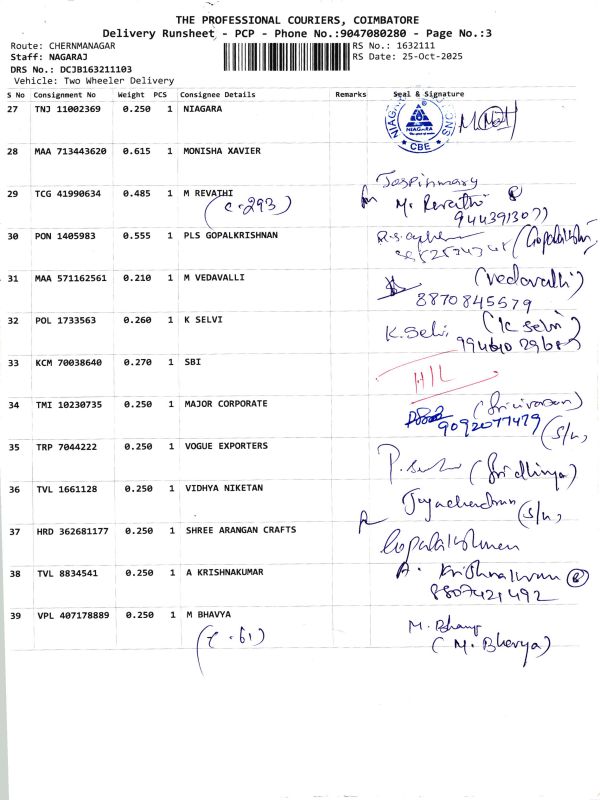 THE PROFESSIONAL COURIERS, COIMBATORE
Delivery Runsheet - PCP - Phone No.:9047080280 - Page No.:3
Route: CHERNMANAGAR RS No.: 1632111
Staff: NAGARAJ RS Date: 25-Oct-2025
DRS No.: DCJB163211103
Vehicle: Two Wheeler Delivery
S No Consignment No Weight PCS Consignee Details Remarks Seal & Signature
27 TNJ 11002369 0.250 1 NIAGARA
NIAGARA
CBE
28 MAA 713443620 0.615 1 MONISHA XAVIER
Jospinmary
29 TCG 41990634 0.485 1 M REVATHI for M. Revathi
(C-293) 9443913077
30 PON 1405983 0.555 1 PLS GOPALKRISHNAN
31 MAA 571162561 0.210 1 M VEDAVALLI (Vedavalli)
8870845579
32 POL 1733563 0.260 1 K SELVI K.Selvi (K Selvi)
33 KCM 70038640 0.270 1 SBI
H/L
34 TMI 10230735 0.250 1 MAJOR CORPORATE (Srinivasan)
9092077479 (S/n,
35 TRP 7044222 0.250 1 VOGUE EXPORTERS
36 TVL 1661128 0.250 1 VIDHYA NIKETAN
(S/n,
37 HRD 362681177 0.250 1 SHREE ARANGAN CRAFTS
Gopalakrishnan
38 TVL 8834541 0.250 1 A KRISHNAKUMAR A. Krishnakumar
8807421492
39 VPL 407178889 0.250 1 M BHAVYA
(C-61) (M. Bhavya)